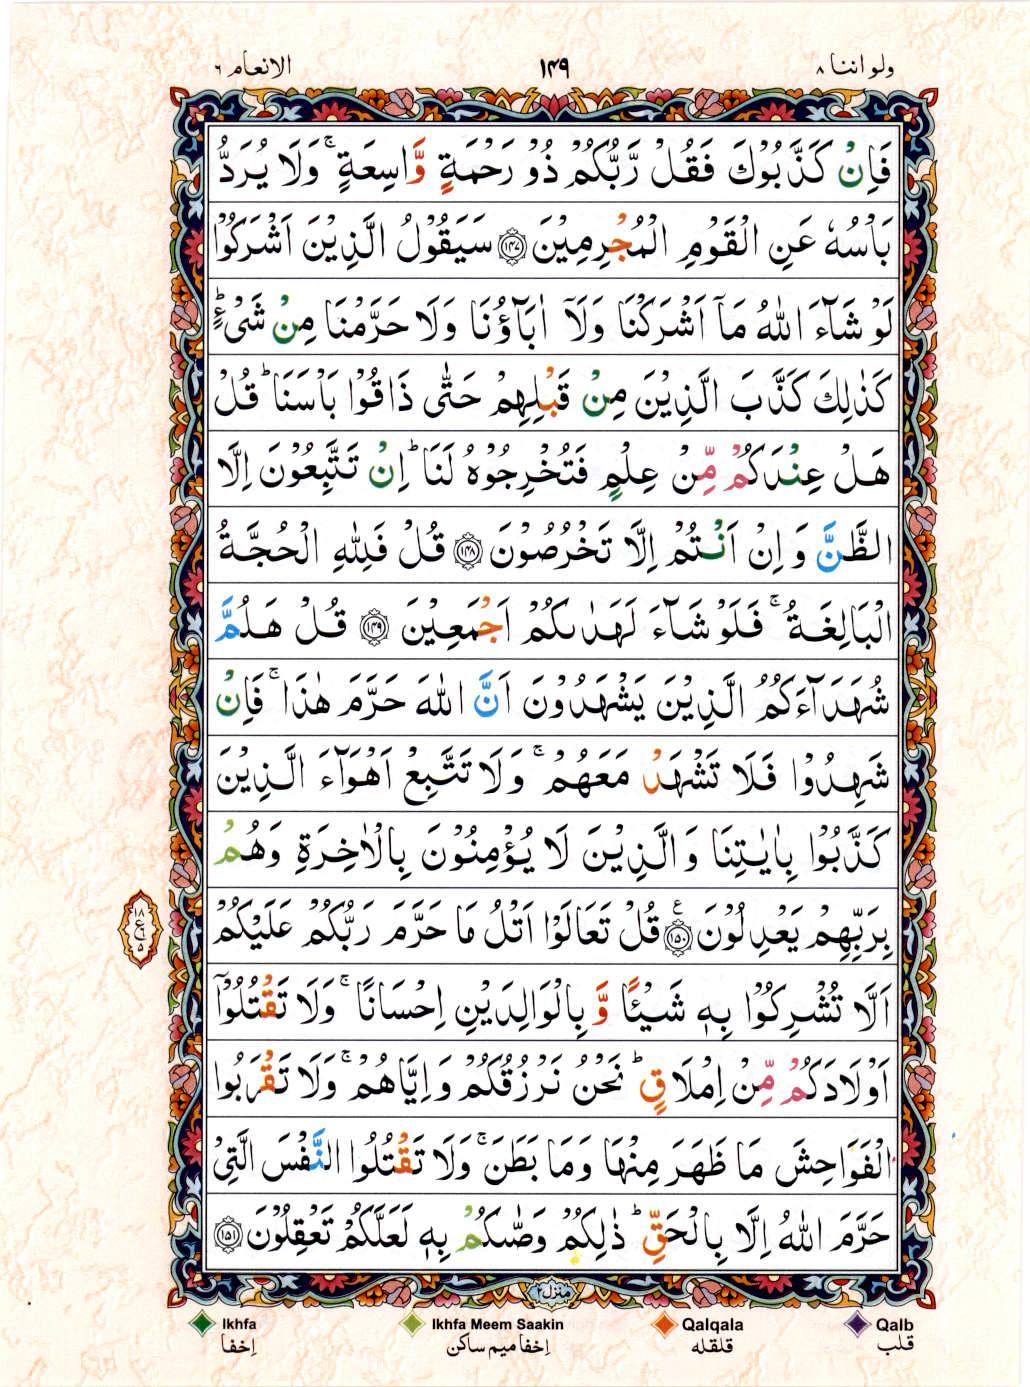 ولو اننا ٨
١٤٩
الانعام ٦
فَاِنْ كَذَّبُوْكَ فَقُلْ رَّبُّكُمْ ذُوْ رَحْمَةٍ وَّاسِعَةٍ ۚ وَلَا يُرَدُّ
بَاْسُهٗ عَنِ الْقَوْمِ الْمُجْرِمِيْنَ ﴿١٤٧﴾ سَيَقُوْلُ الَّذِيْنَ اَشْرَكُوْا
لَوْ شَآءَ اللهُ مَآ اَشْرَكْنَا وَلَآ اٰبَآؤُنَا وَلَا حَرَّمْنَا مِنْ شَیْءٍ ؕ
كَذٰلِكَ كَذَّبَ الَّذِيْنَ مِنْ قَبْلِهِمْ حَتّٰى ذَاقُوْا بَاْسَنَا ؕ قُلْ
هَلْ عِنْدَكُمْ مِّنْ عِلْمٍ فَتُخْرِجُوْهُ لَنَا ؕ اِنْ تَتَّبِعُوْنَ اِلَّا
الظَّنَّ وَ اِنْ اَنْتُمْ اِلَّا تَخْرُصُوْنَ ﴿١٤٨﴾ قُلْ فَلِلّٰهِ الْحُجَّةُ
الْبَالِغَةُ ۚ فَلَوْ شَآءَ لَهَدٰىكُمْ اَجْمَعِيْنَ ﴿١٤٩﴾ قُلْ هَلُمَّ
شُهَدَآءَكُمُ الَّذِيْنَ يَشْهَدُوْنَ اَنَّ اللهَ حَرَّمَ هٰذَا ۚ فَاِنْ
شَهِدُوْا فَلَا تَشْهَدْ مَعَهُمْ ۚ وَلَا تَتَّبِعْ اَهْوَآءَ الَّذِيْنَ
كَذَّبُوْا بِاٰيٰتِنَا وَ الَّذِيْنَ لَا يُؤْمِنُوْنَ بِالْاٰخِرَةِ وَهُمْ
بِرَبِّهِمْ يَعْدِلُوْنَ ﴿١٥٠﴾ ع قُلْ تَعَالَوْا اَتْلُ مَا حَرَّمَ رَبُّكُمْ عَلَيْكُمْ
١٨
ع
٥
اَلَّا تُشْرِكُوْا بِهٖ شَيْـًٔا وَّ بِالْوَالِدَيْنِ اِحْسَانًا ۚ وَلَا تَقْتُلُوْٓا
اَوْلَادَكُمْ مِّنْ اِمْلَاقٍ ؕ نَحْنُ نَرْزُقُكُمْ وَ اِيَّاهُمْ ۚ وَلَا تَقْرَبُوا
الْفَوَاحِشَ مَا ظَهَرَ مِنْهَا وَمَا بَطَنَ ۚ وَلَا تَقْتُلُوا النَّفْسَ الَّتِیْ
حَرَّمَ اللهُ اِلَّا بِالْحَقِّ ؕ ذٰلِكُمْ وَصّٰىكُمْ بِهٖ لَعَلَّكُمْ تَعْقِلُوْنَ ﴿١٥١﴾
منزل ٢
Ikhfa
اِخفا
Ikhfa Meem Saakin
اِخفا میم ساکن
Qalqala
قلقله
Qalb
قلب